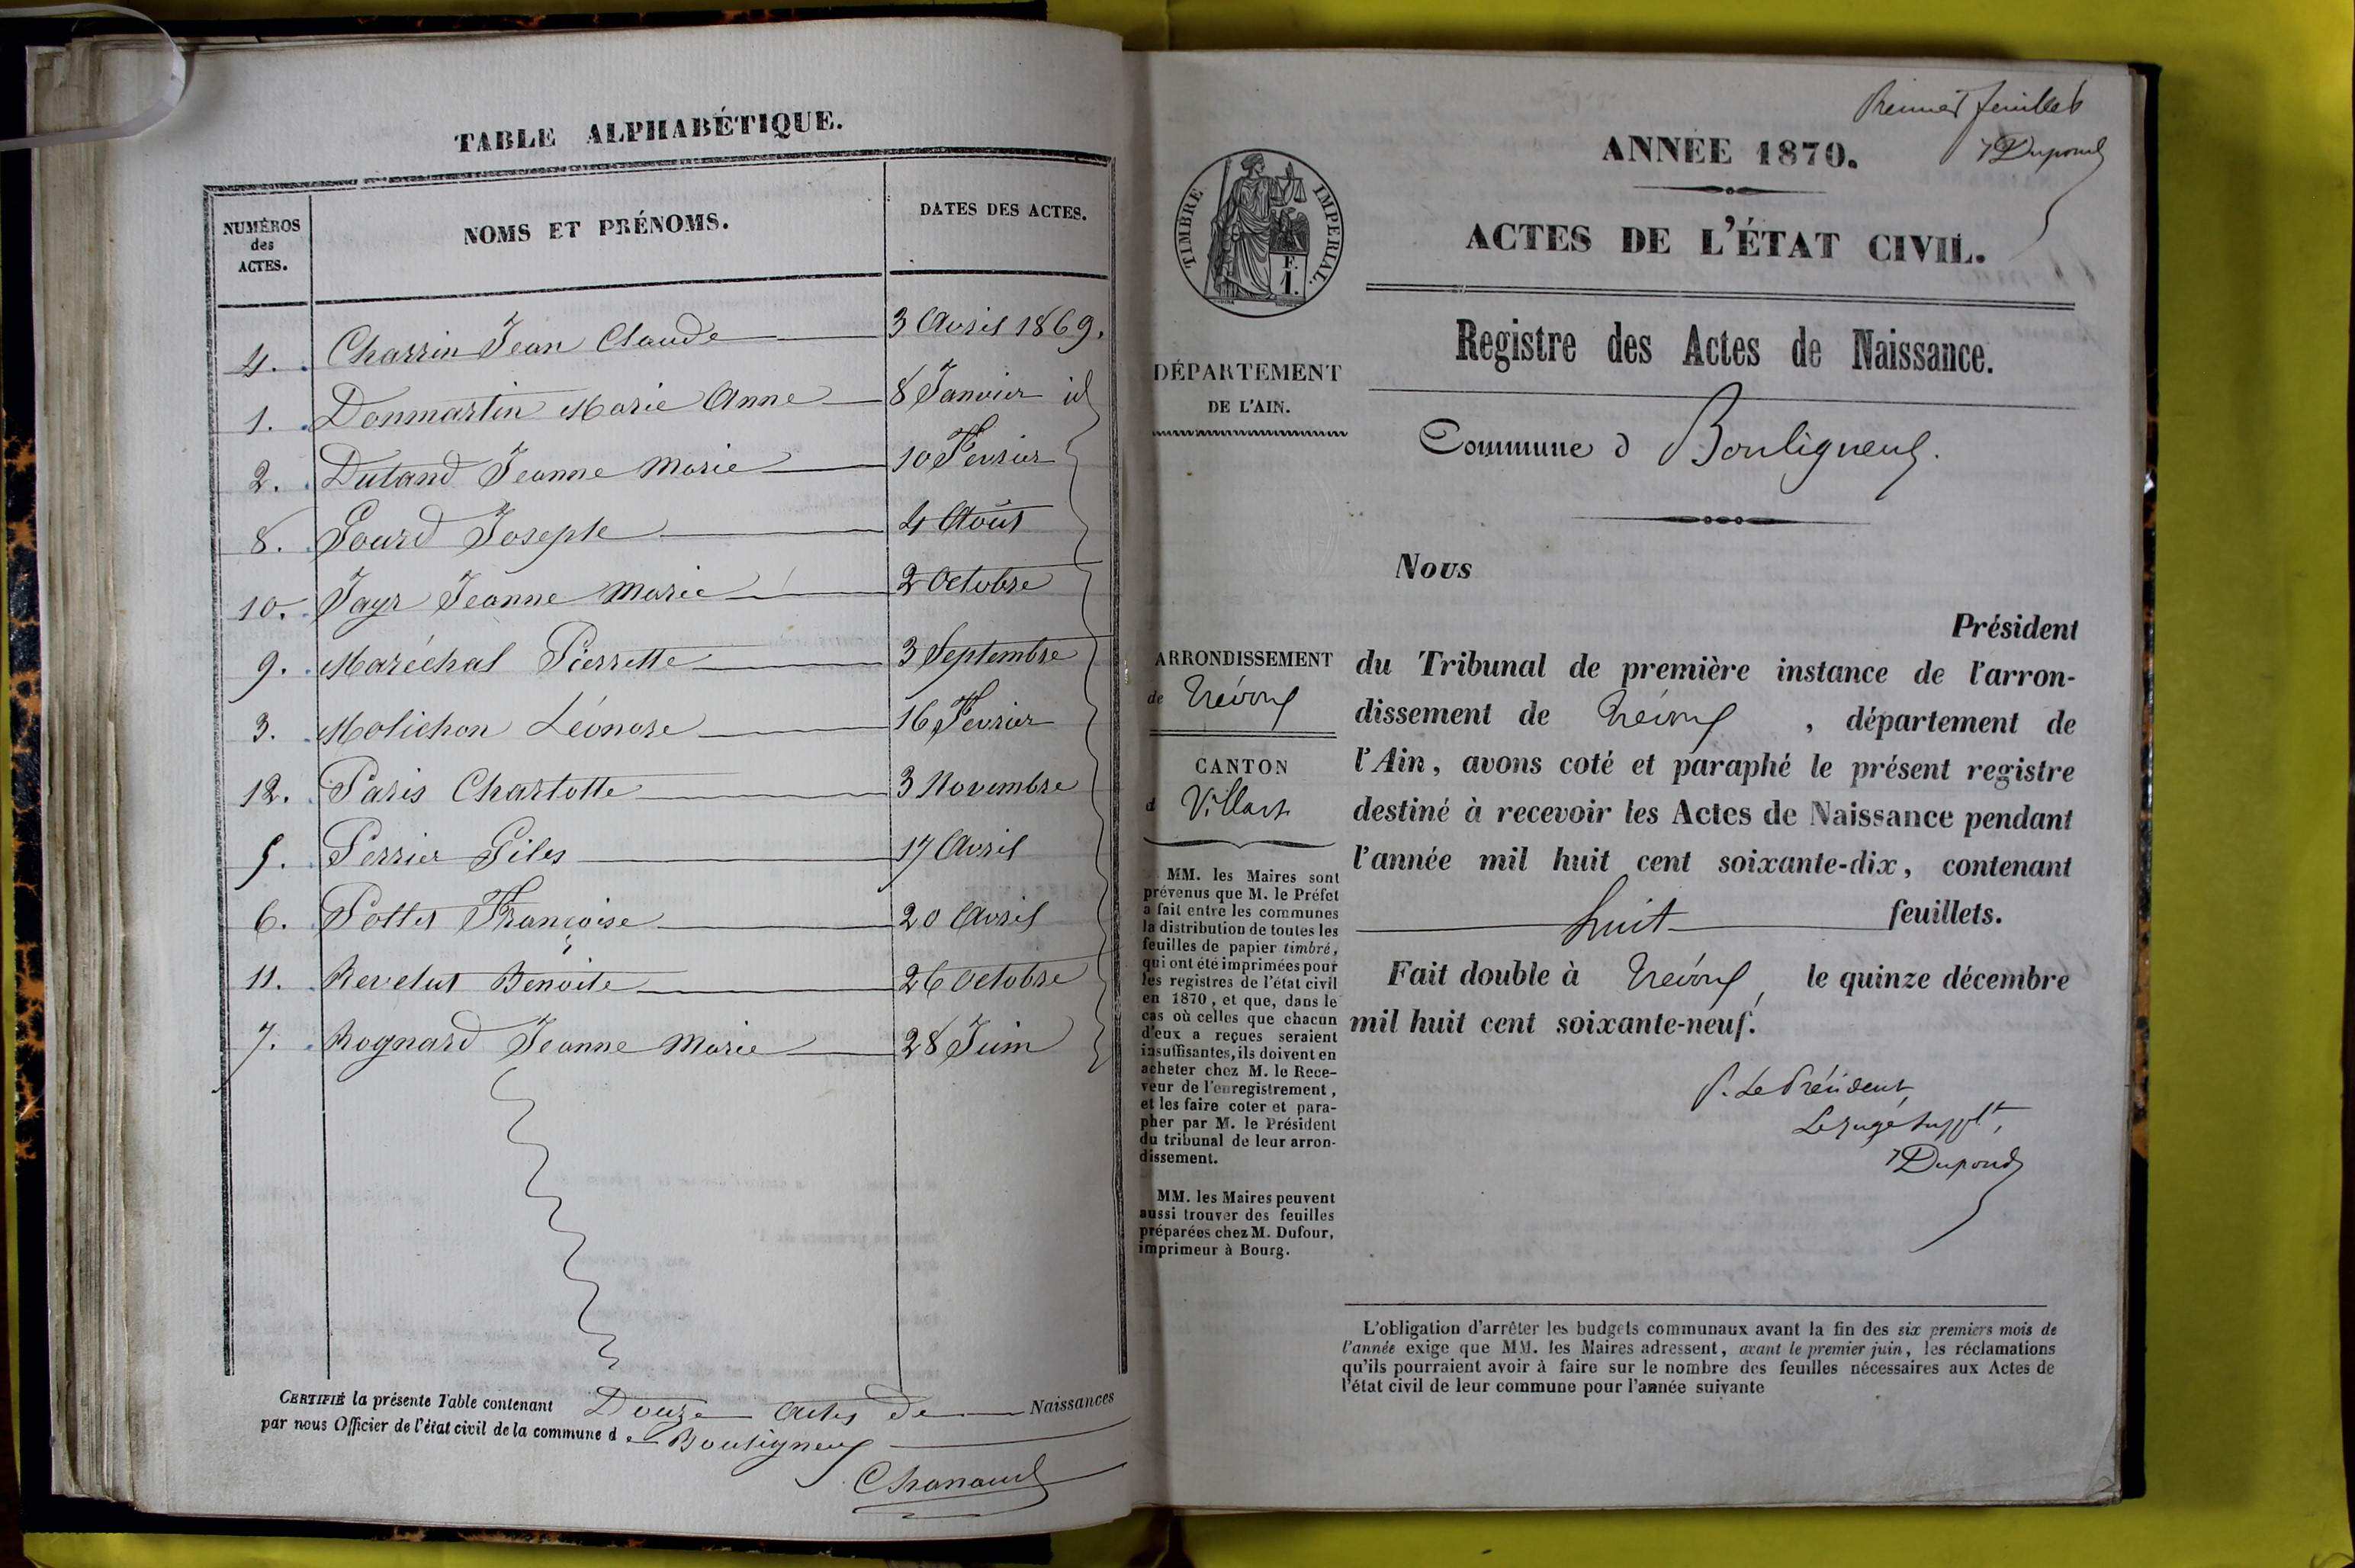 TABLE ALPHABÉTIQUE.
NUMÉROS des ACTES. NOMS ET PRÉNOMS. DATES DES ACTES.
4. Charrin Jean Claude 3 Avril 1869.
1. Donmartin Marie Anne 8 Janvier id
2. Dutand Jeanne Marie 10 Fevrier
8. Gourd Joseph 4 Août
10. Jayr Jeanne Marie 2 Octobre
9. Maréchal Pierrette 3 Septembre
3. Molichon Léonore 16 Fevrier
12. Paris Charlotte 3 Novembre
5. Perrier Giles 17 Avril
6. Pottet Françoise 20 Avril
11. Revelut Benoite 26 Octobre
7. Rognard Jeanne Marie 28 Juin
CERTIFIÉ la présente Table contenant Douze actes de Naissances
par nous Officier de l'état civil de la commune de Bouligneux
Premier feuillet
Dupond
ANNÉE 1870.
ACTES DE L'ÉTAT CIVIL.
TIMBRE IMPERIAL.
F.
1.
Registre des Actes de Naissance.
DÉPARTEMENT
DE L'AIN.
Commune d Bouligneux.
ARRONDISSEMENT
de Trévoux
CANTON
d Villars
MM. les Maires sont
prévenus que M. le Préfet
a fait entre les communes
la distribution de toutes les
feuilles de papier timbré,
qui ont été imprimées pour
les registres de l'état civil
en 1870, et que, dans le
cas où celles que chacun
d'eux a reçues seraient
insuffisantes, ils doivent en
acheter chez M. le Rece-
veur de l'enregistrement,
et les faire coter et para-
pher par M. le Président
du tribunal de leur arron-
dissement.
MM. les Maires peuvent
aussi trouver des feuilles
préparées chez M. Dufour,
imprimeur à Bourg.
Nous
Président
du Tribunal de première instance de l'arron-
dissement de Trévoux , département de
l'Ain, avons coté et paraphé le présent registre
destiné à recevoir les Actes de Naissance pendant
l'année mil huit cent soixante-dix, contenant
huit feuillets.
Fait double à Trévoux, le quinze décembre
mil huit cent soixante-neuf.
P. Le Président,
Le Juge Supplt,
Dupond
L'obligation d'arrêter les budgets communaux avant la fin des six premiers mois de
l'année exige que MM. les Maires adressent, avant le premier juin, les réclamations
qu'ils pourraient avoir à faire sur le nombre des feuilles nécessaires aux Actes de
l'état civil de leur commune pour l'année suivante